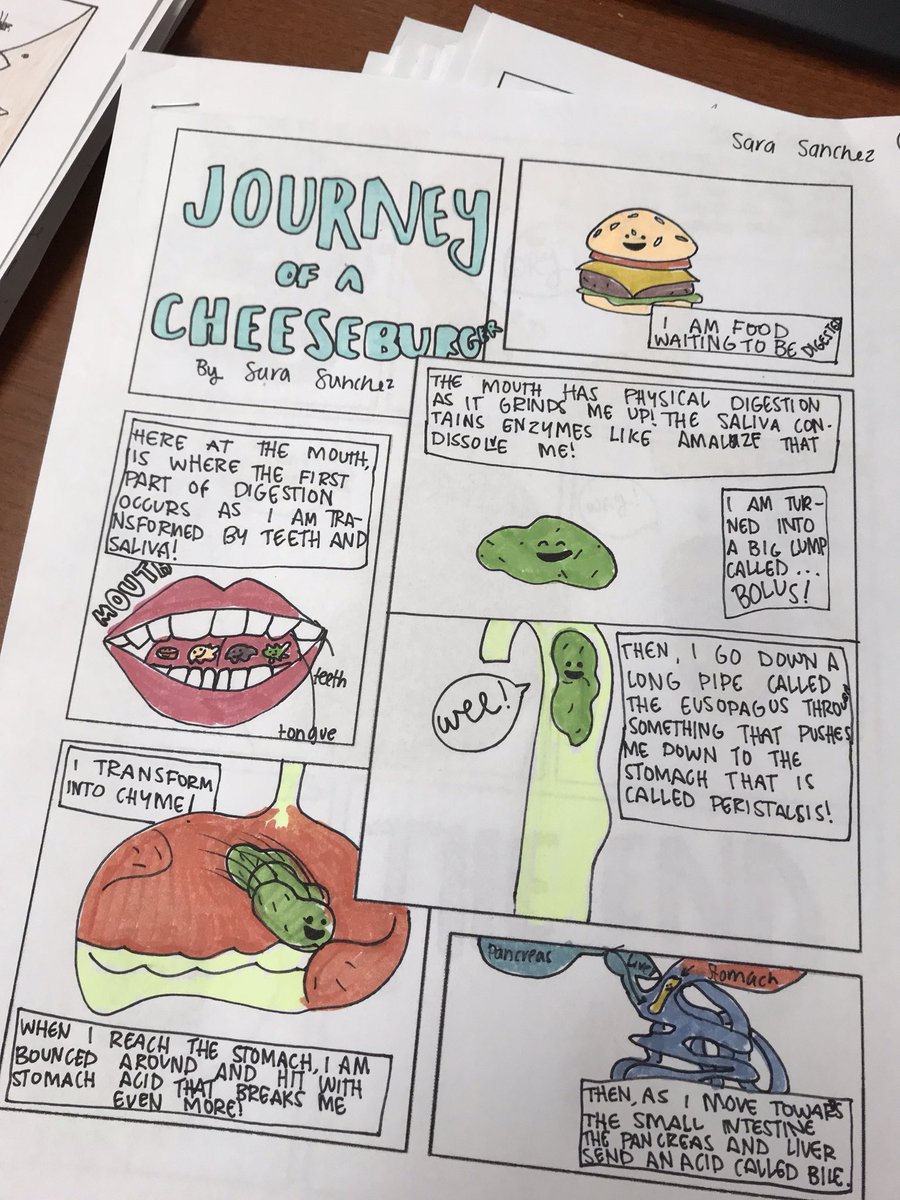 Sara Sanchez
JOURNEY
OF A
CHEESEBURGER
By Sara Sanchez
I AM FOOD
WAITING TO BE DIGESTED
HERE AT THE MOUTH,
IS WHERE THE FIRST
PART OF DIGESTION
OCCURS AS I AM TRA-
NSFORMED BY TEETH AND
SALIVA!
MOUTH
teeth
tongue
THE MOUTH HAS PHYSICAL DIGESTION
AS IT GRINDS ME UP! THE SALIVA CON-
TAINS ENZYMES LIKE AMALAIZE THAT
DISSOLVE ME!
I AM TUR-
NED INTO
A BIG LUMP
CALLED...
BOLUS!
wee!
THEN, I GO DOWN A
LONG PIPE CALLED
THE EUSOPAGUS THROUGH
SOMETHING THAT PUSHES
ME DOWN TO THE
STOMACH THAT IS
CALLED PERISTALSIS!
I TRANSFORM
INTO CHYME!
WHEN I REACH THE STOMACH, I AM
BOUNCED AROUND AND HIT WITH
STOMACH ACID THAT BREAKS ME
EVEN MORE!
Pancreas
Liver
Stomach
THEN, AS I MOVE TOWARDS
THE SMALL INTESTINE
THE PANCREAS AND LIVER
SEND AN ACID CALLED BILE.